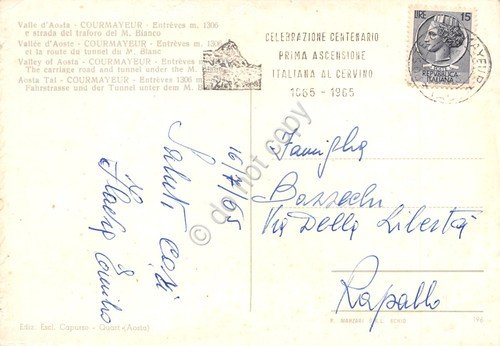 Valle d'Aosta - COURMAYEUR - Entrèves m. 1306
e strada del traforo del M. Bianco
Vallée d'Aoste - COURMAYEUR - Entrèves m. 1306
et la route du tunnel du M. Blanc
Valley of Aosta - COURMAYEUR - Entrèves m. 1306
The carriage road and tunnel under the M.
Aosta Tal - COURMAYEUR - Entrèves 1306 m.
Fahrstrasse und der Tunnel unter dem M. B
CELEBRAZIONE CENTENARIO
PRIMA ASCENSIONE
ITALIANA AL CERVINO
1865 - 1965
LIRE 15
REPUBBLICA
ITALIANA
16/7/65
Saluti cari
Famiglia
Bozzechi
Via Della Libertà
Rapallo
Ediz. Escl. Capurso - Quart (Aosta)
196
do not copy